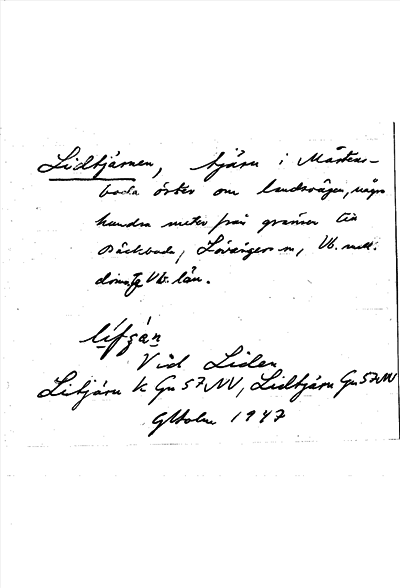 Lidtjärnen, tjärn i Mårtens-
boda öster om landsvägen, några
hundra meter från gränsen till
Bäckboda, Lövångers sn, Vb.
Vb. län.
Vid Liden
Litjärn k Gn 57 NV, Lidtjärn Gn 57 NV
GHolm 1947